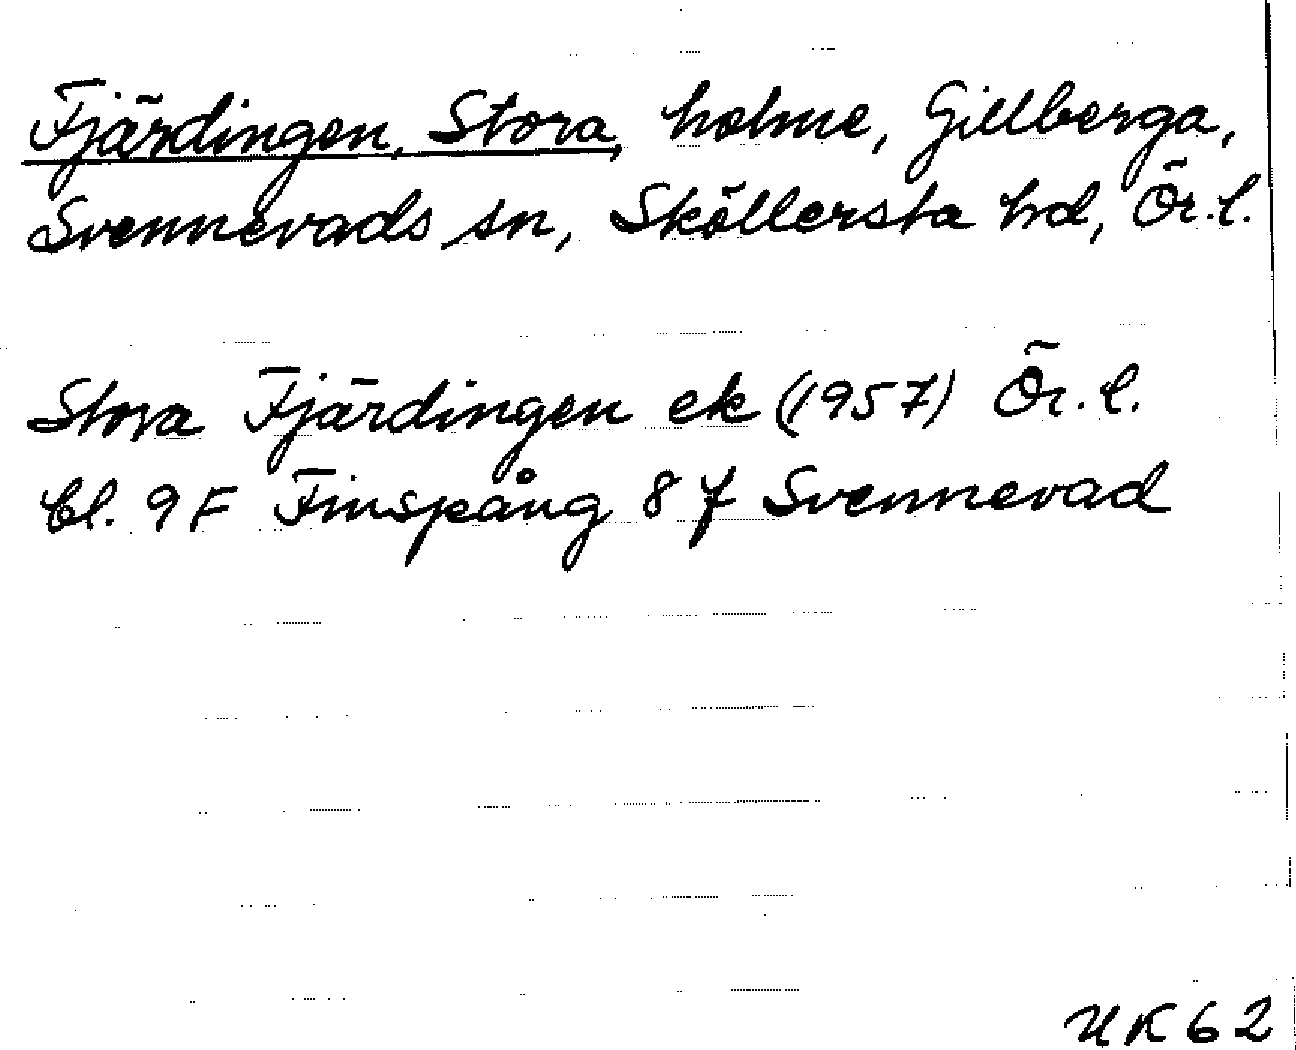 Fjärdingen, Stora, holme, Gillberga,
Svennevads sn, Sköllersta hd, Ör.l.
Stora Fjärdingen ek (1957) Ör.l.
bl. 9F Finspång 8 f Svennevad
HK62